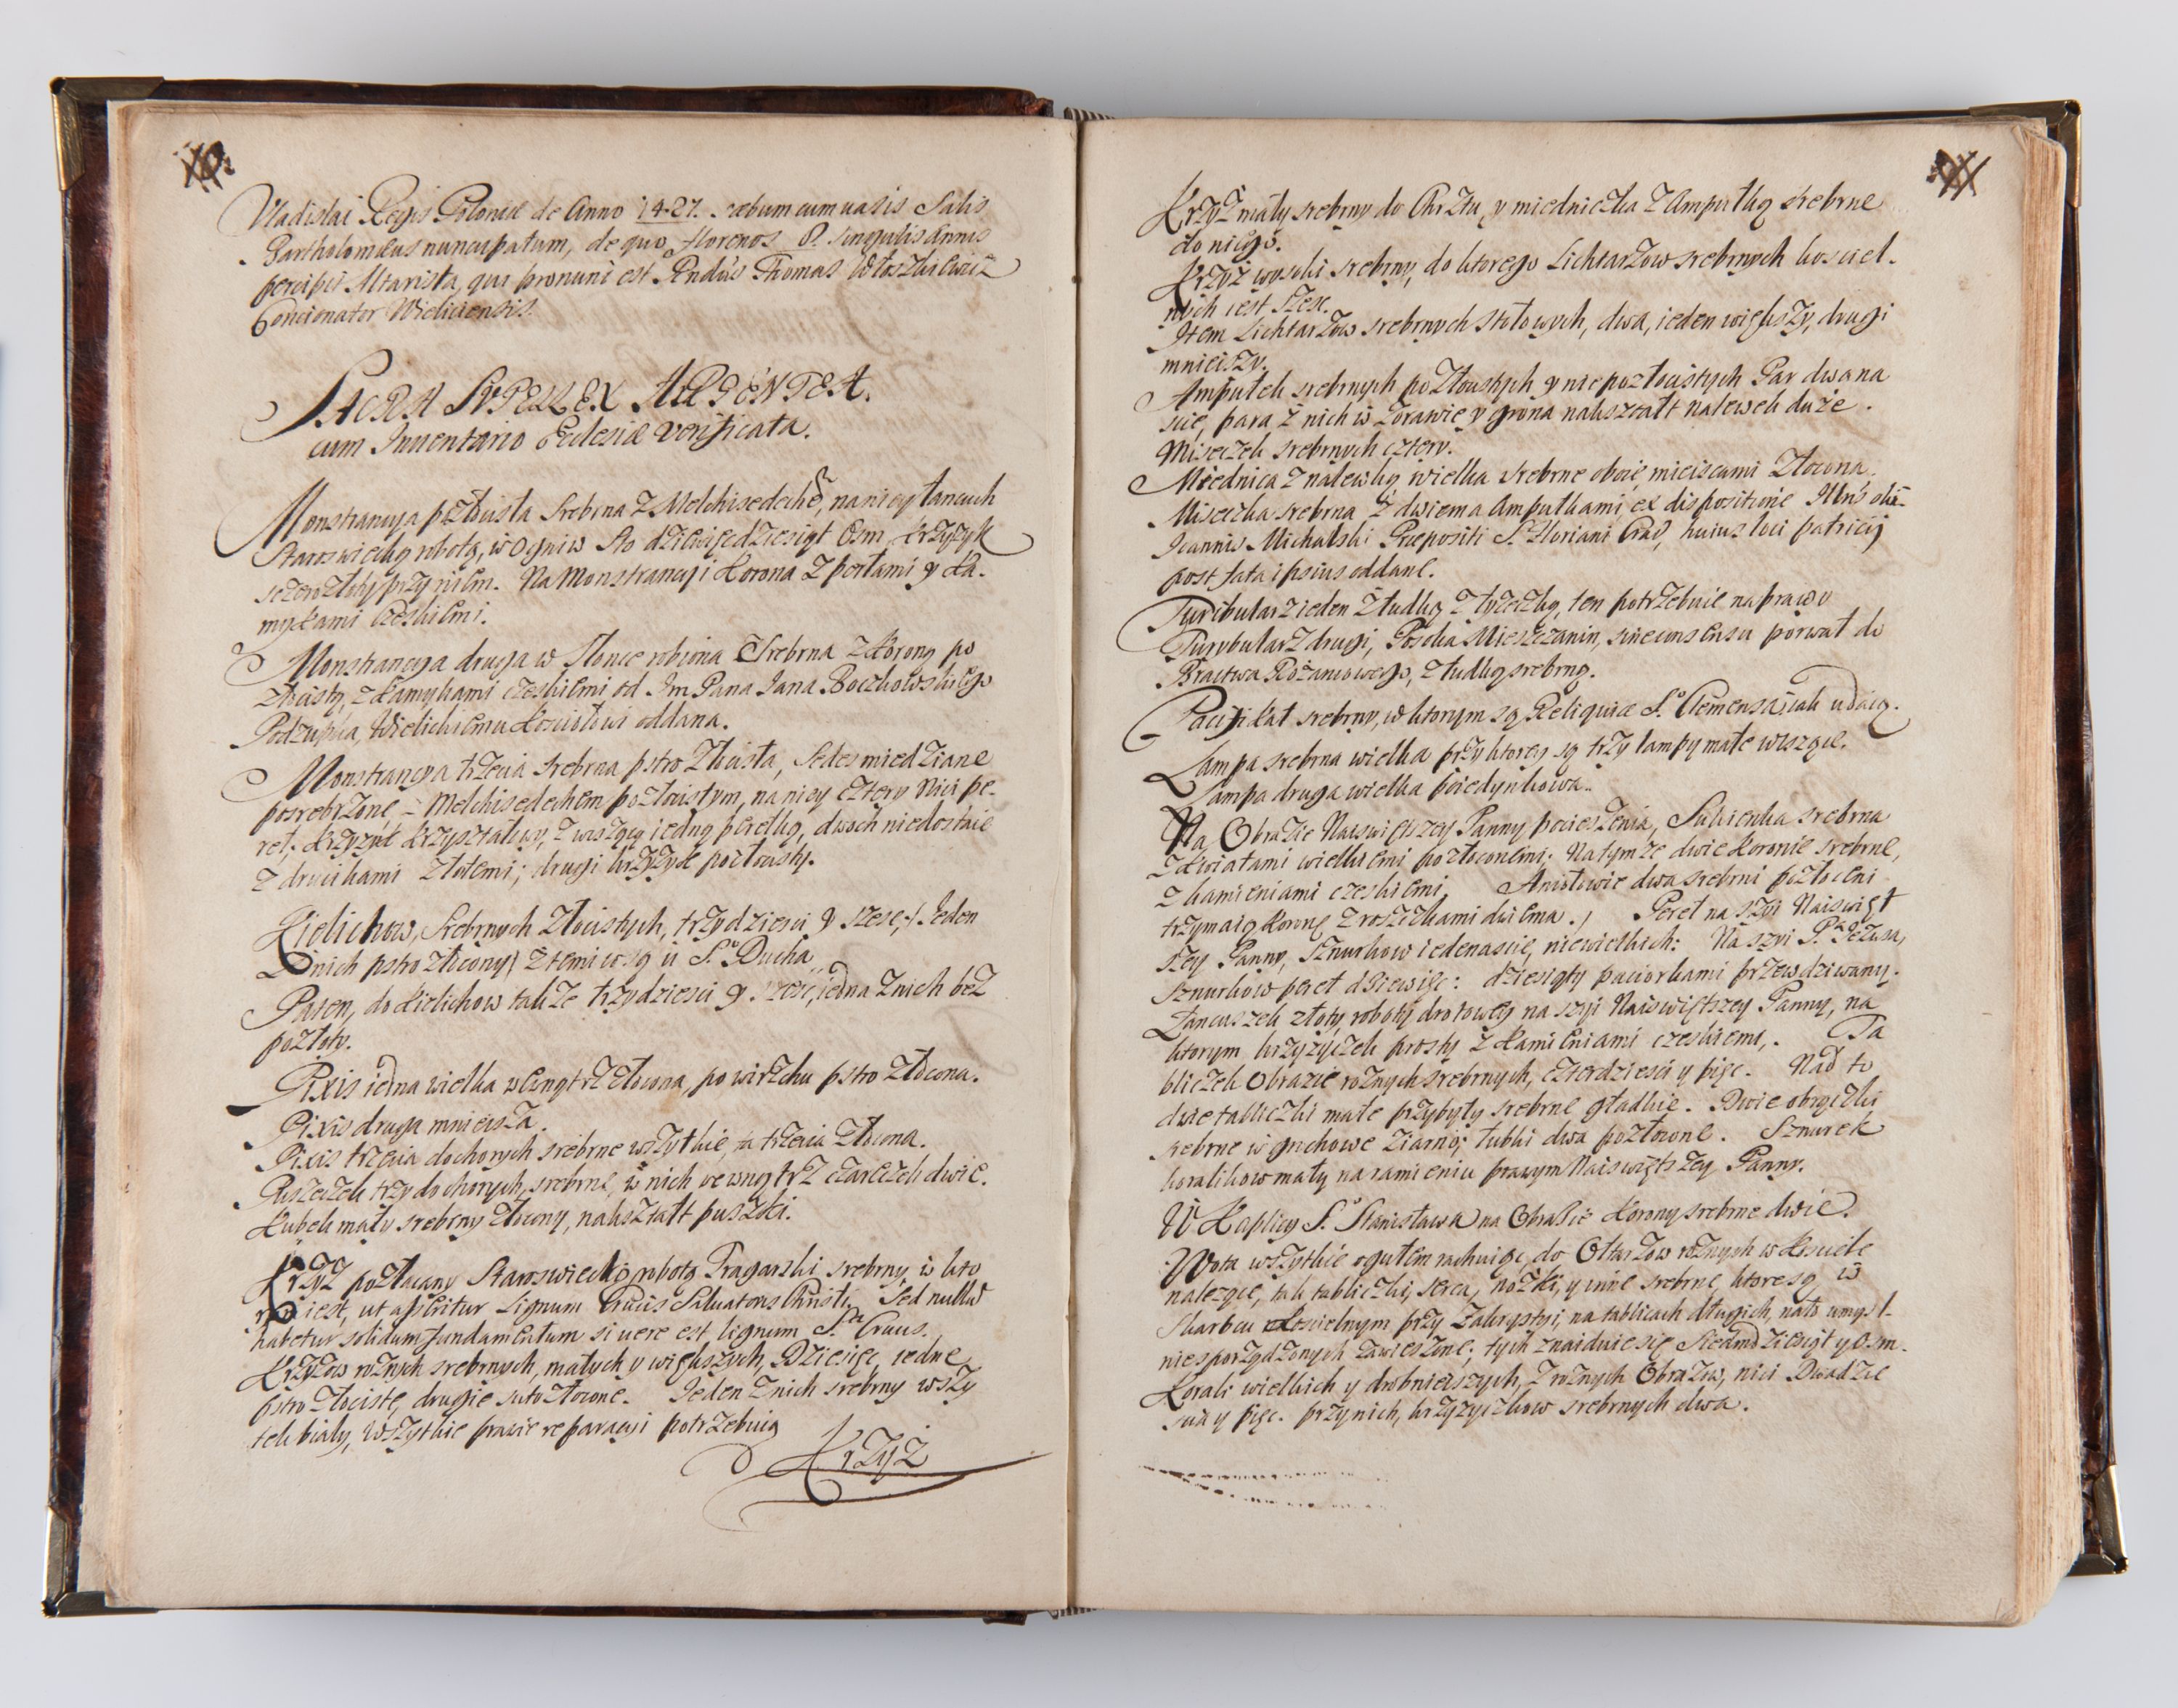 Vladislai Regis Poloniæ de Anno 1427. sebum cum uasis Salis
Bartholomæus nuncupatum, de quo florenos 8. singulis Annis
percipit Altarista, qui pronunc est Rndus Thomas Włoszkiewicz
Concionator Wieliciensis.
SACRA SVPELLEX ARGENTEA.
cum Inuentario Ecclesiæ verificata.
Monstrancya pozłocista Srebrna z Melchisedeche, na niey łancuch
Staroswiecką robotą, w Ogniw sto dziewięcdziesiąt Osm, krzyżyk
szczerozłoty przy niem. Na Monstrancyi Korona z perłami y ka-
mykami Czeskiemi.
Monstrancya druga w Słonce robiona Srebrna z koroną po
złocistą, z kamykami czeskiemi od Im Pana Jana Boczkowskiego
Podzupka, Wielickiemu Kosciołowi oddana.
Monstrancya trzecia srebrna pstro złocista, Sedes miedziane
posrebrzone, z Melchisedechem pozłocistym, na niey cztery nici pe-
reł, krzyzyk krzyształowy, z wiszącą iedną perełką, dwoch niedostaie
z drucikami złotemi; drugi krzyżyk pozłocisty.
Kielichow, Srebrnych złocistych, trzydziesci y szesc, / Jeden
z nich pstro złocony / z temi co są u S.o Ducha
Paten, do kielichow także trzydziesci y szesc, iedna z nich bez
pozłoty.
Pixis iedna wielka wewnątrz złocona, po wirzchu pstro złocona.
Pixis druga mnieisza.
Pixis trzecia do chorych srebrne wszytkie, ta trzecia złocona.
Puszeczek trzy do chorych, srebrne, w nich wewnątrz czareczek dwie.
Kubek mały srebrny złocony, nakształt puszki.
Krzyż pozłacany Staroswiecką robotą Fragarski srebrny, w kto
rym iest, ut asseritur Lignum Crucis Saluatoris Christi. Sed nullum
habetur solidum fundamentum si uere est lignum S.æ Crucis.
Krzyżow rożnych srebrnych, małych y większych, Dziesięc, iedne
pstro złociste, drugie suto złocone. Jeden z nich srebrny wszy
tek biały, wszytkie prawie reparacyi potrzebuią
Krzyż
Krzyż mały srebrny do Chrztu, y miedniczka z Ampułką srebrne
do niego.
Krzyż wysoki srebrny, do ktorego Lichtarzow srebrnych koscieł-
nych iest szesc.
Item Lichtarzow srebrnych stołowych, dwa, ieden większy, drugi
mnieiszy.
Ampułek srebrnych pozłocistych y niepozłocistych Par dwana
scie, para z nich w Zorawie y grona nakształt nalewek duże.
Miseczek srebrnych cztery.
Miednica z nalewką wielka srebrne oboie, mieiscami złocona.
Miseczka srebrna z dwiema Ampułkami, ex dispositione Illris olim
Joannis Michalski Præpositi S. Floriani Crac, huius loci patricij
post fata ipsius oddane.
Turibularz ieden z łudką z łyżeczką, ten potrzebuie naprawy
Turybularz drugi, Posoka Mieszczanin, sine consensu porwał do
Bractwa Rożancowego, z łudką srebrną.
Pacifikał srebrny, w ktorym są Reliquiæ S.o Clemensa, iak udaią.
Lampa srebrna wielka przy ktorey są trzy lampy małe wiszące.
Lampa druga wielka poiedynkowa.
Na Obrazie Naiswiętszey Panny pocieszenia, Sukienka srebrna
z kwiatami wielkiemi pozłoconemi. Na tymże dwie Koronie srebrne,
z kamieniami czeskiemi. Aniołowie dwa srebrni pozłoceni
trzymaią Koronę z roszczkami dwiema. / Pereł na szyi Naiswięt
szey Panny, sznurkow iedenascie, niewielkich: Na szyi P. Jezusa,
sznurkow pereł dziewięc: dziesiąty paciorkami przewdziwany.
Łancuszek złoty, roboty drotowey na szyi Naiswiętszey Panny, na
ktorym krzyzyczek prosty z kamieniami czeskiemi. Ta
bliczek Obrazie rożnych srebrnych, czterdziesci y pięc. Nad to
dwie tabliczki małe przybyły srebrne gładkie. Dwie obrączki
srebrne w gruchowe ziarno; tubki dwa pozłocone. Sznurek
koralikow mały na ramieniu prawym Naiswiętszey Panny.
W Kaplicy S.o Stanisława na Obrazie Korony srebrne dwie.
Wota wszytkie ogułem rachuiąc, do Ołtarzow rożnych w Kosciele
nalezące, iak tabliczki, serca, nożki, y inne srebrne, ktore są w
Skarbcu Koscielnym przy Zakrystyi, na tablicach długich, na to umysl-
nie sporządzonych zawieszone; tych znaiduie się Siedmdziesiąt y Osm.
Korali wielkich y drobnieiszych, z rożnych Obrazow, nici Dwadzie
scia y pięc. przy nich, krzyzyczkow srebrnych dwa.